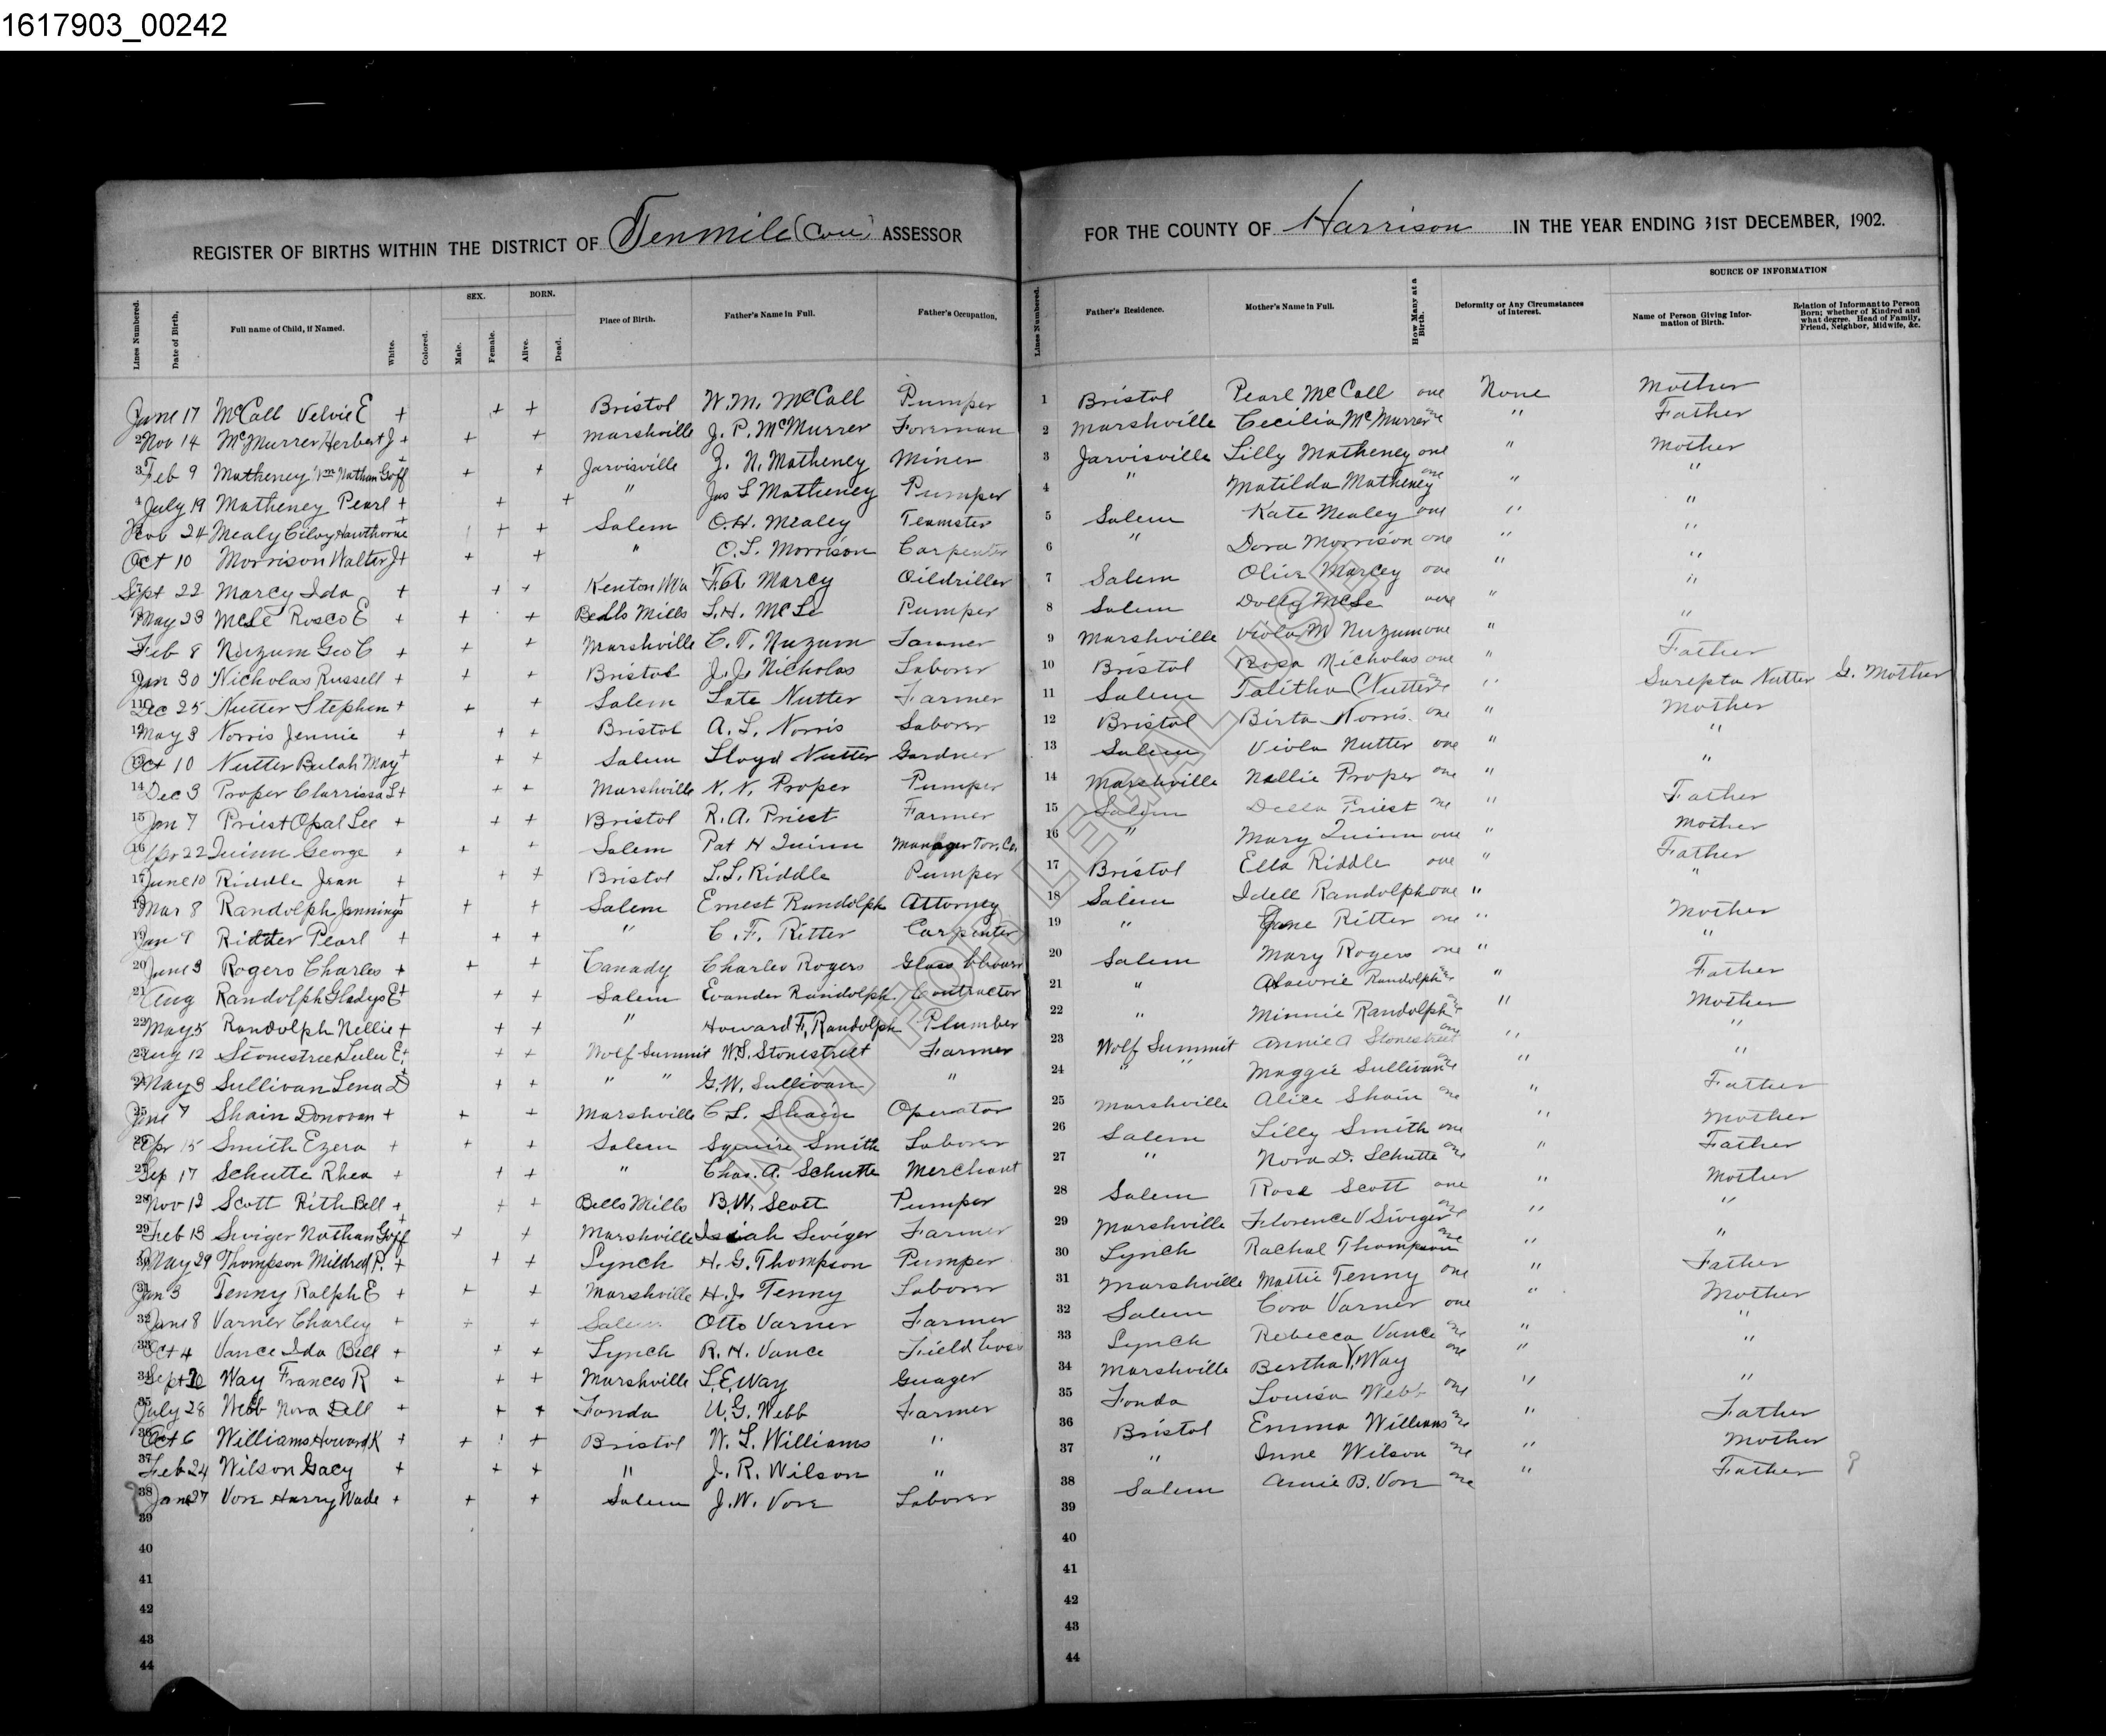 1617903_00242
REGISTER OF BIRTHS WITHIN THE DISTRICT OF Tenmile (Con) ASSESSOR FOR THE COUNTY OF Harrison IN THE YEAR ENDING 31ST DECEMBER, 1902.
Lines Numbered. Date of Birth, Full name of Child, if Named. White. Colored. SEX. Male. Female. BORN. Alive. Dead. Place of Birth. Father's Name in Full. Father's Occupation, Lines Numbered. Father's Residence. Mother's Name in Full. How Many at a Birth. Deformity or Any Circumstances of Interest. SOURCE OF INFORMATION Name of Person Giving Information of Birth. Relation of Informant to Person Born; whether of Kindred and what degree. Head of Family, Friend, Neighbor, Midwife, &c.
June 17 McCall Velvie E + + + Bristol W. M. McCall Pumper 1 Bristol Pearl McCall one None Mother
2 Nov 14 McMurrer Herbert J + + + Marshville J. P. McMurrer Foreman 2 Marshville Cecilia McMurrer one " Father
3 Feb 9 Matheney Wm Nathan Goff + + + Jarvisville Z. N. Matheney Miner 3 Jarvisville Lilly Matheney one " Mother
4 July 19 Matheney Pearl + + + " Jas L Matheney Pumper 4 " Matilda Matheney one " "
24 Mealy Hawthorne + + + Salem O. H. Mealey Teamster 5 Salem Kate Mealey one " "
Oct 10 Morrison Walter J + + + " O. L. Morrison Carpenter 6 " Dora Morrison one " "
Sept 22 Marcy Ida + + + Kenton F. A. Marcy Oildriller 7 Salem Olive Marcey one " "
May 23 McLe Rosco E + + + Bells Mills L. H. McLe Pumper 8 Salem Dolly McLe one " "
Feb 8 Nuzum Geo C + + + Marshville C. T. Nuzum 9 Marshville Viola M Nuzum one " "
Jan 30 Nicholas Russell + + + Bristol J. J. Nicholas Laborer 10 Bristol Rosa Nicholas one " Father
11 Dec 25 Nutter Stephen + + + Salem Late Nutter Farmer 11 Salem Talitha C Nutter one " Sarepta Nutter G. Mother
12 May 3 Norris Jennie + + + Bristol A. L. Norris Laborer 12 Bristol Birta Norris one " Mother
Oct 10 Nutter Bulah May + + + Salem Lloyd Nutter Gardner 13 Salem Viola Nutter one " "
14 Dec 3 Proper Clarrissa L + + + Marshville N. N. Proper Pumper 14 Marshville Nellie Proper one " "
15 Jan 7 Priest Opal Lee + + + Bristol R. A. Priest Farmer 15 Salem Della Priest one " Father
16 Apr 22 Quinn George + + + Salem Pat H Quinn Manager Tor. Co. 16 " Mary Quinn one " Mother
17 June 10 Riddle Jean + + + Bristol L. L. Riddle Pumper 17 Bristol Ella Riddle one " Father
18 Mar 8 Randolph Jennings + + + Salem Ernest Randolph Attorney 18 Salem Idell Randolph one " "
19 Jan 9 Ritter Pearl + + + " C. F. Ritter Carpenter 19 " Jane Ritter one " Mother
20 June 3 Rogers Charles + + + Canady Charles Rogers Glass 20 Salem Mary Rogers one " "
21 Aug Randolph Gladys E + + + Salem Evander Randolph Contractor 21 " Randolph one " Father
22 May 5 Randolph Nellie + + + " Howard F. Randolph Plumber 22 " Minnie Randolph one " Mother
23 Aug 12 Stonestreet Lulu E + + + Wolf Summit W. S. Stonestreet Farmer 23 Wolf Summit Annie A Stonestreet one " "
24 May 3 Sullivan Lena D + + + " " G. W. Sullivan " 24 " " Maggie Sullivan one " "
25 June 7 Shain Donovan + + + Marshville C. L. Shain Operator 25 Marshville Alice Shain one " Father
26 Apr 15 Smith Ezera + + + Salem Squire Smith Laborer 26 Salem Lilly Smith one " Mother
27 Sep 17 Schutte Rhea + + + " Chas. A. Schutte Merchant 27 " Nora D. Schutte one " Father
28 Nov 12 Scott Rith Bell + + + Bells Mills B. W. Scott Pumper 28 Salem Rose Scott one " Mother
29 Feb 13 Swiger Nathan Goff + + + Marshville Isaiah Swiger Farmer 29 Marshville Florence V Swiger one " "
30 May 29 Thompson Mildred P. + + + Lynch H. G. Thompson Pumper 30 Lynch Rachal Thompson one " "
31 Jan 3 Tenny Ralph E + + + Marshville H. J. Tenny Laborer 31 Marshville Mattie Tenny one " Father
32 June 8 Varner Charley + + + Salem Otto Varner Farmer 32 Salem Cora Varner one " Mother
33 Oct 4 Vance Ida Bell + + + Lynch R. H. Vance Field 33 Lynch Rebecca Vance one " "
34 Sept Way Frances R + + + Marshville L. E. Way Guager 34 Marshville Bertha V. Way one " "
35 July 28 Webb Nora Dell + + + Fonda U. G. Webb Farmer 35 Fonda Louisa Webb one " "
36 Oct 6 Williams Howard K + + + Bristol W. L. Williams " 36 Bristol Emma Williams one " Father
37 Feb 24 Wilson Gacy + + + " J. R. Wilson " 37 " Inne Wilson one " Mother
38 27 Vore Harry Wade + + + Salem J. W. Vore Laborer 38 Salem Annie B. Vore one " Father ?
39 39
40 40
41 41
42 42
43 43
44 44
NOT FOR LEGAL USE